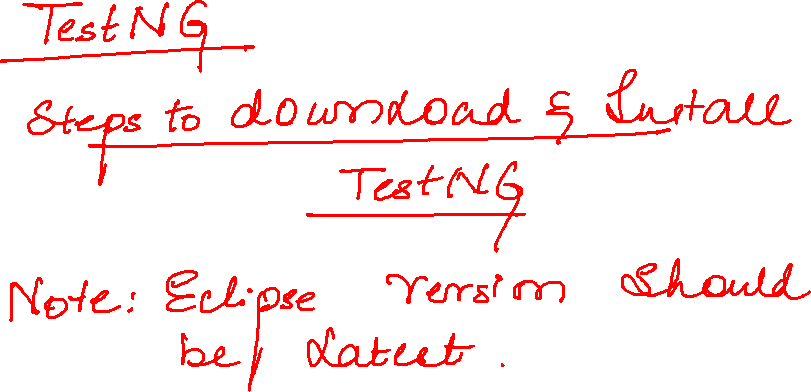 TestNG
Steps to download & Install
TestNG
Note: Eclipse version should
be latest.